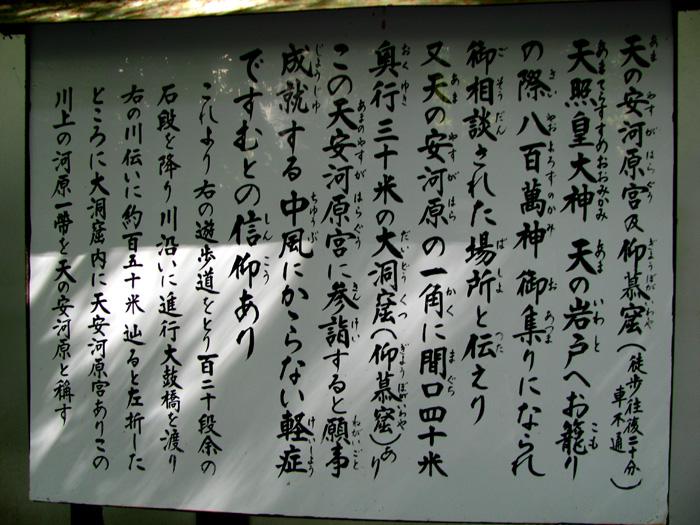 天の安河原宮及仰慕窟(徒歩往後二十分 車不通)
天照皇大神 天の岩戸へお籠り
の際八百萬神御集りになられ
御相談された場所と伝えり
又天の安河原の一角に間口四十米
奥行三十米の大洞窟(仰慕窟)あり
この天安河原宮に参詣すると願事
成就する中風にかゝらない軽症
ですむとの信仰あり
これより右の遊歩道をとり百二十段余の
石段を降り川沿いに進行大鼓橋を渡り
右の川伝いに約百五十米辿ると左折した
ところに大洞窟内に天安河原宮ありこの
川上の河原一帶を天の安河原と稱す